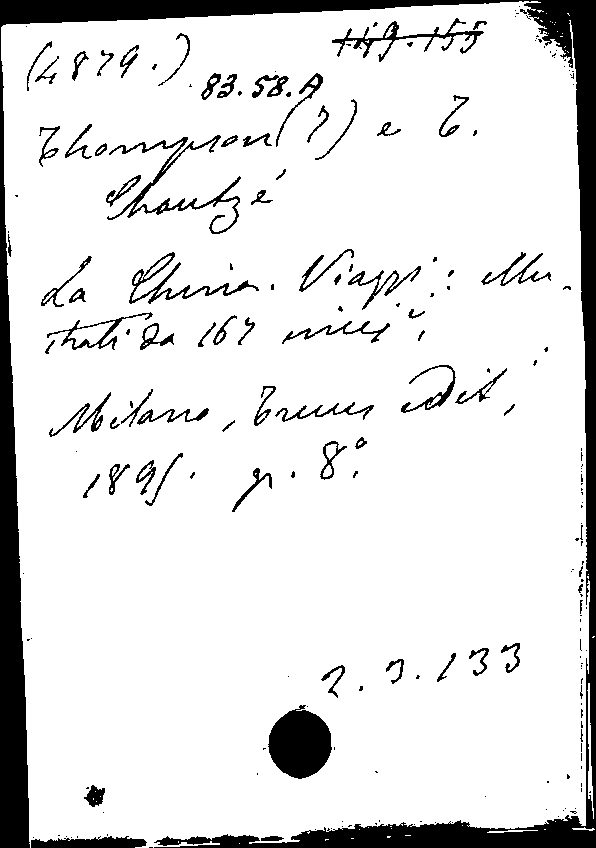 (4879.) 149.155
83.58.A
Thompson (J) e T.
Choutzé
La China. Viaggi: illu-
strati da 167 incis.i
Milano, Treves edit.;
1895. gr. 8°.
2.3.133